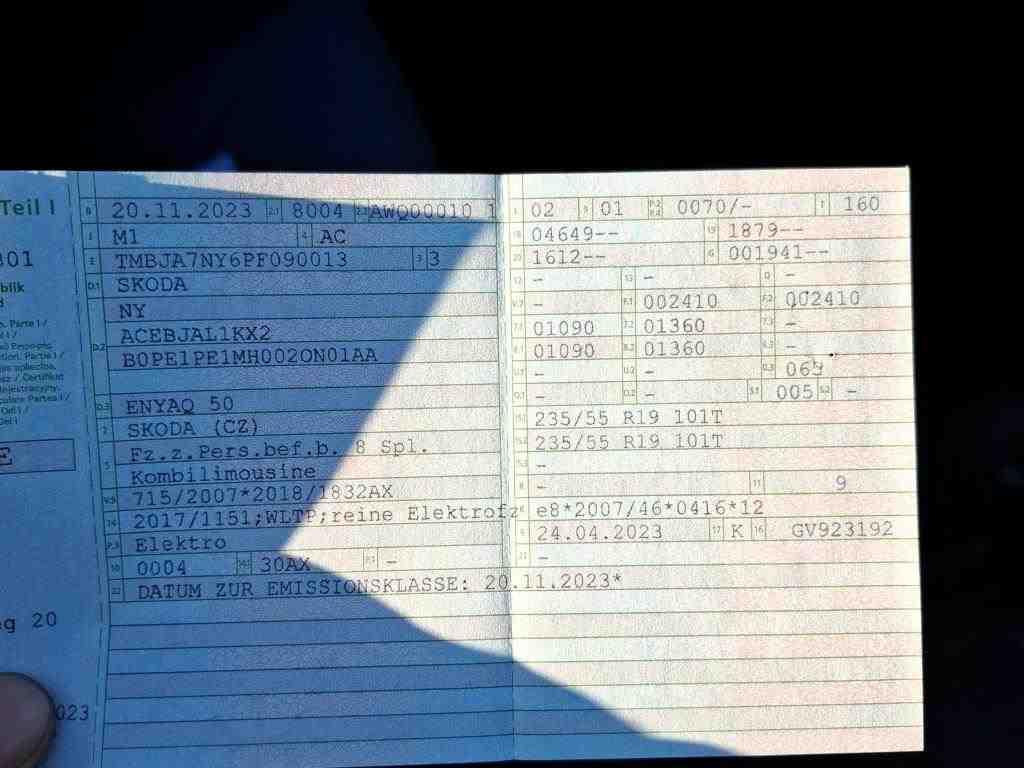 Teil I
B 20.11.2023 2.1 8004 2.2 AWQ00010 1
J M1 4 AC
E TMBJA7NY6PF090013 3 3
D.1 SKODA
NY
D.2 ACEBJAL1KX2
B0PE1PE1MH002ON01AA
D.3 ENYAQ 50
2 SKODA (CZ)
5 Fz.z.Pers.bef.b. 8 Spl.
Kombilimousine
V.9 715/2007*2018/1832AX
14 2017/1151;WLTP;reine Elektrofz
P.3 Elektro
10 0004 14.1 30AX P.1 -
22 DATUM ZUR EMISSIONSKLASSE: 20.11.2023*
L 02 9 01 P.2 P.4 0070/- T 160
18 04649-- 19 1879--
20 1612-- G 001941--
12 - 13 - Q -
V.7 - F.1 002410 F.2 002410
7.1 01090 7.2 01360 7.3 -
8.1 01090 8.2 01360 8.3 -
U.1 - U.2 - U.3 069
O.1 - O.2 - S.1 005 S.2 -
15.1 235/55 R19 101T
15.2 235/55 R19 101T
15.3 -
R - 11 9
K e8*2007/46*0416*12
6 24.04.2023 17 K 16 GV923192
21 -
001
blik
E
g 20
023